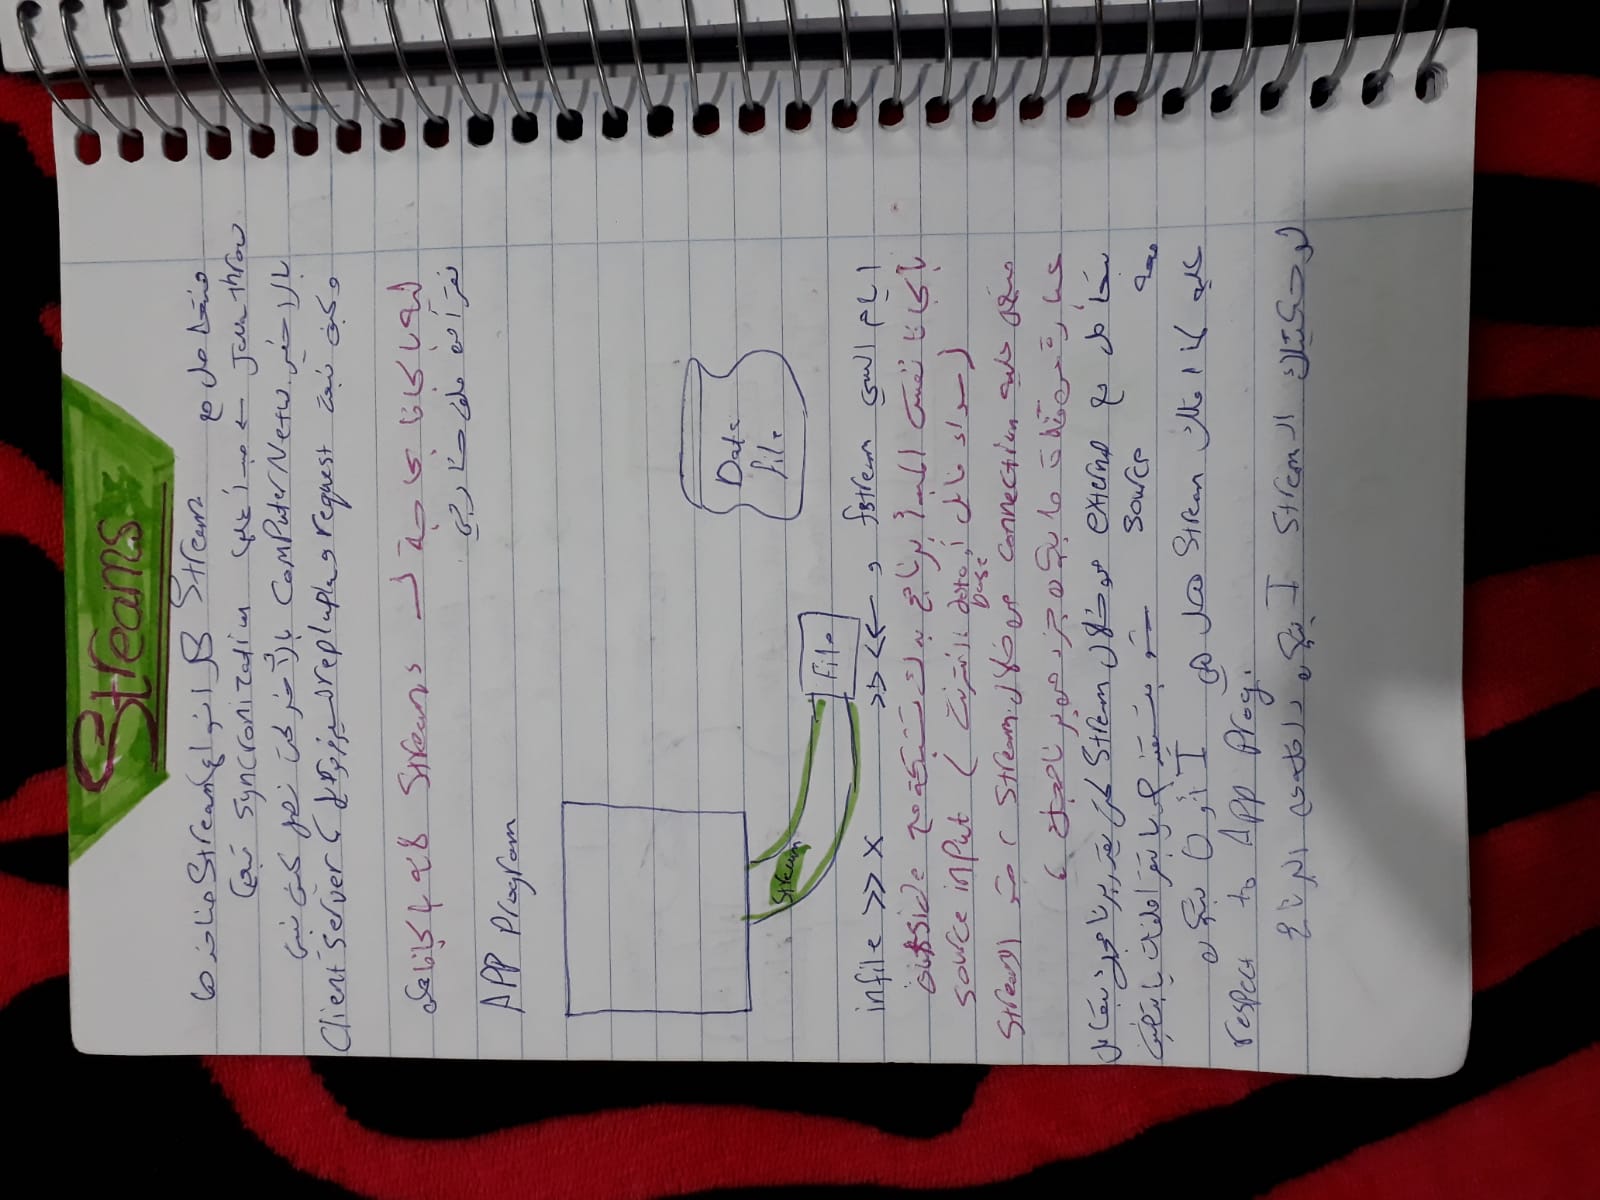 Streams
منتعامل مع Stream كل انواع Stream مناخدها
Java throw ← مبدأ عليها syncronization تبعها
بالاخير Computer Netw. بالآخر لحتى نصل كيف نبني
وكيف نبعت request و replay السيرفر Client Server
ليه بالجافا بحاجة لـ Streams لانه بالجافا ممكن
نقرأ من ملف خارجي
APP Program
Data
file
Stream
File
ايام السي fstream و >> <<
infile >> X
بالجافا نفس المبدأ برنامج بدك تشبكه مع outside
source input ( سواء فايل أو data base انترنت )
منعمل عليه connection من خلال Stream ، الـ Stream
عبارة عن قناة ما بتكون جزء من برنامجك ،
بتعامل مع external source من خلال Stream لحتى يقدر برنامجك يتعامل
معه شو بتستفيد يا بتقرا ملفات يا بتضيف
عليه كذا Stream هل هي I أو O بتكون
respect to APP Prog.
لو حكيتلك الـ Stream I بتكون داخله عالبرنامج